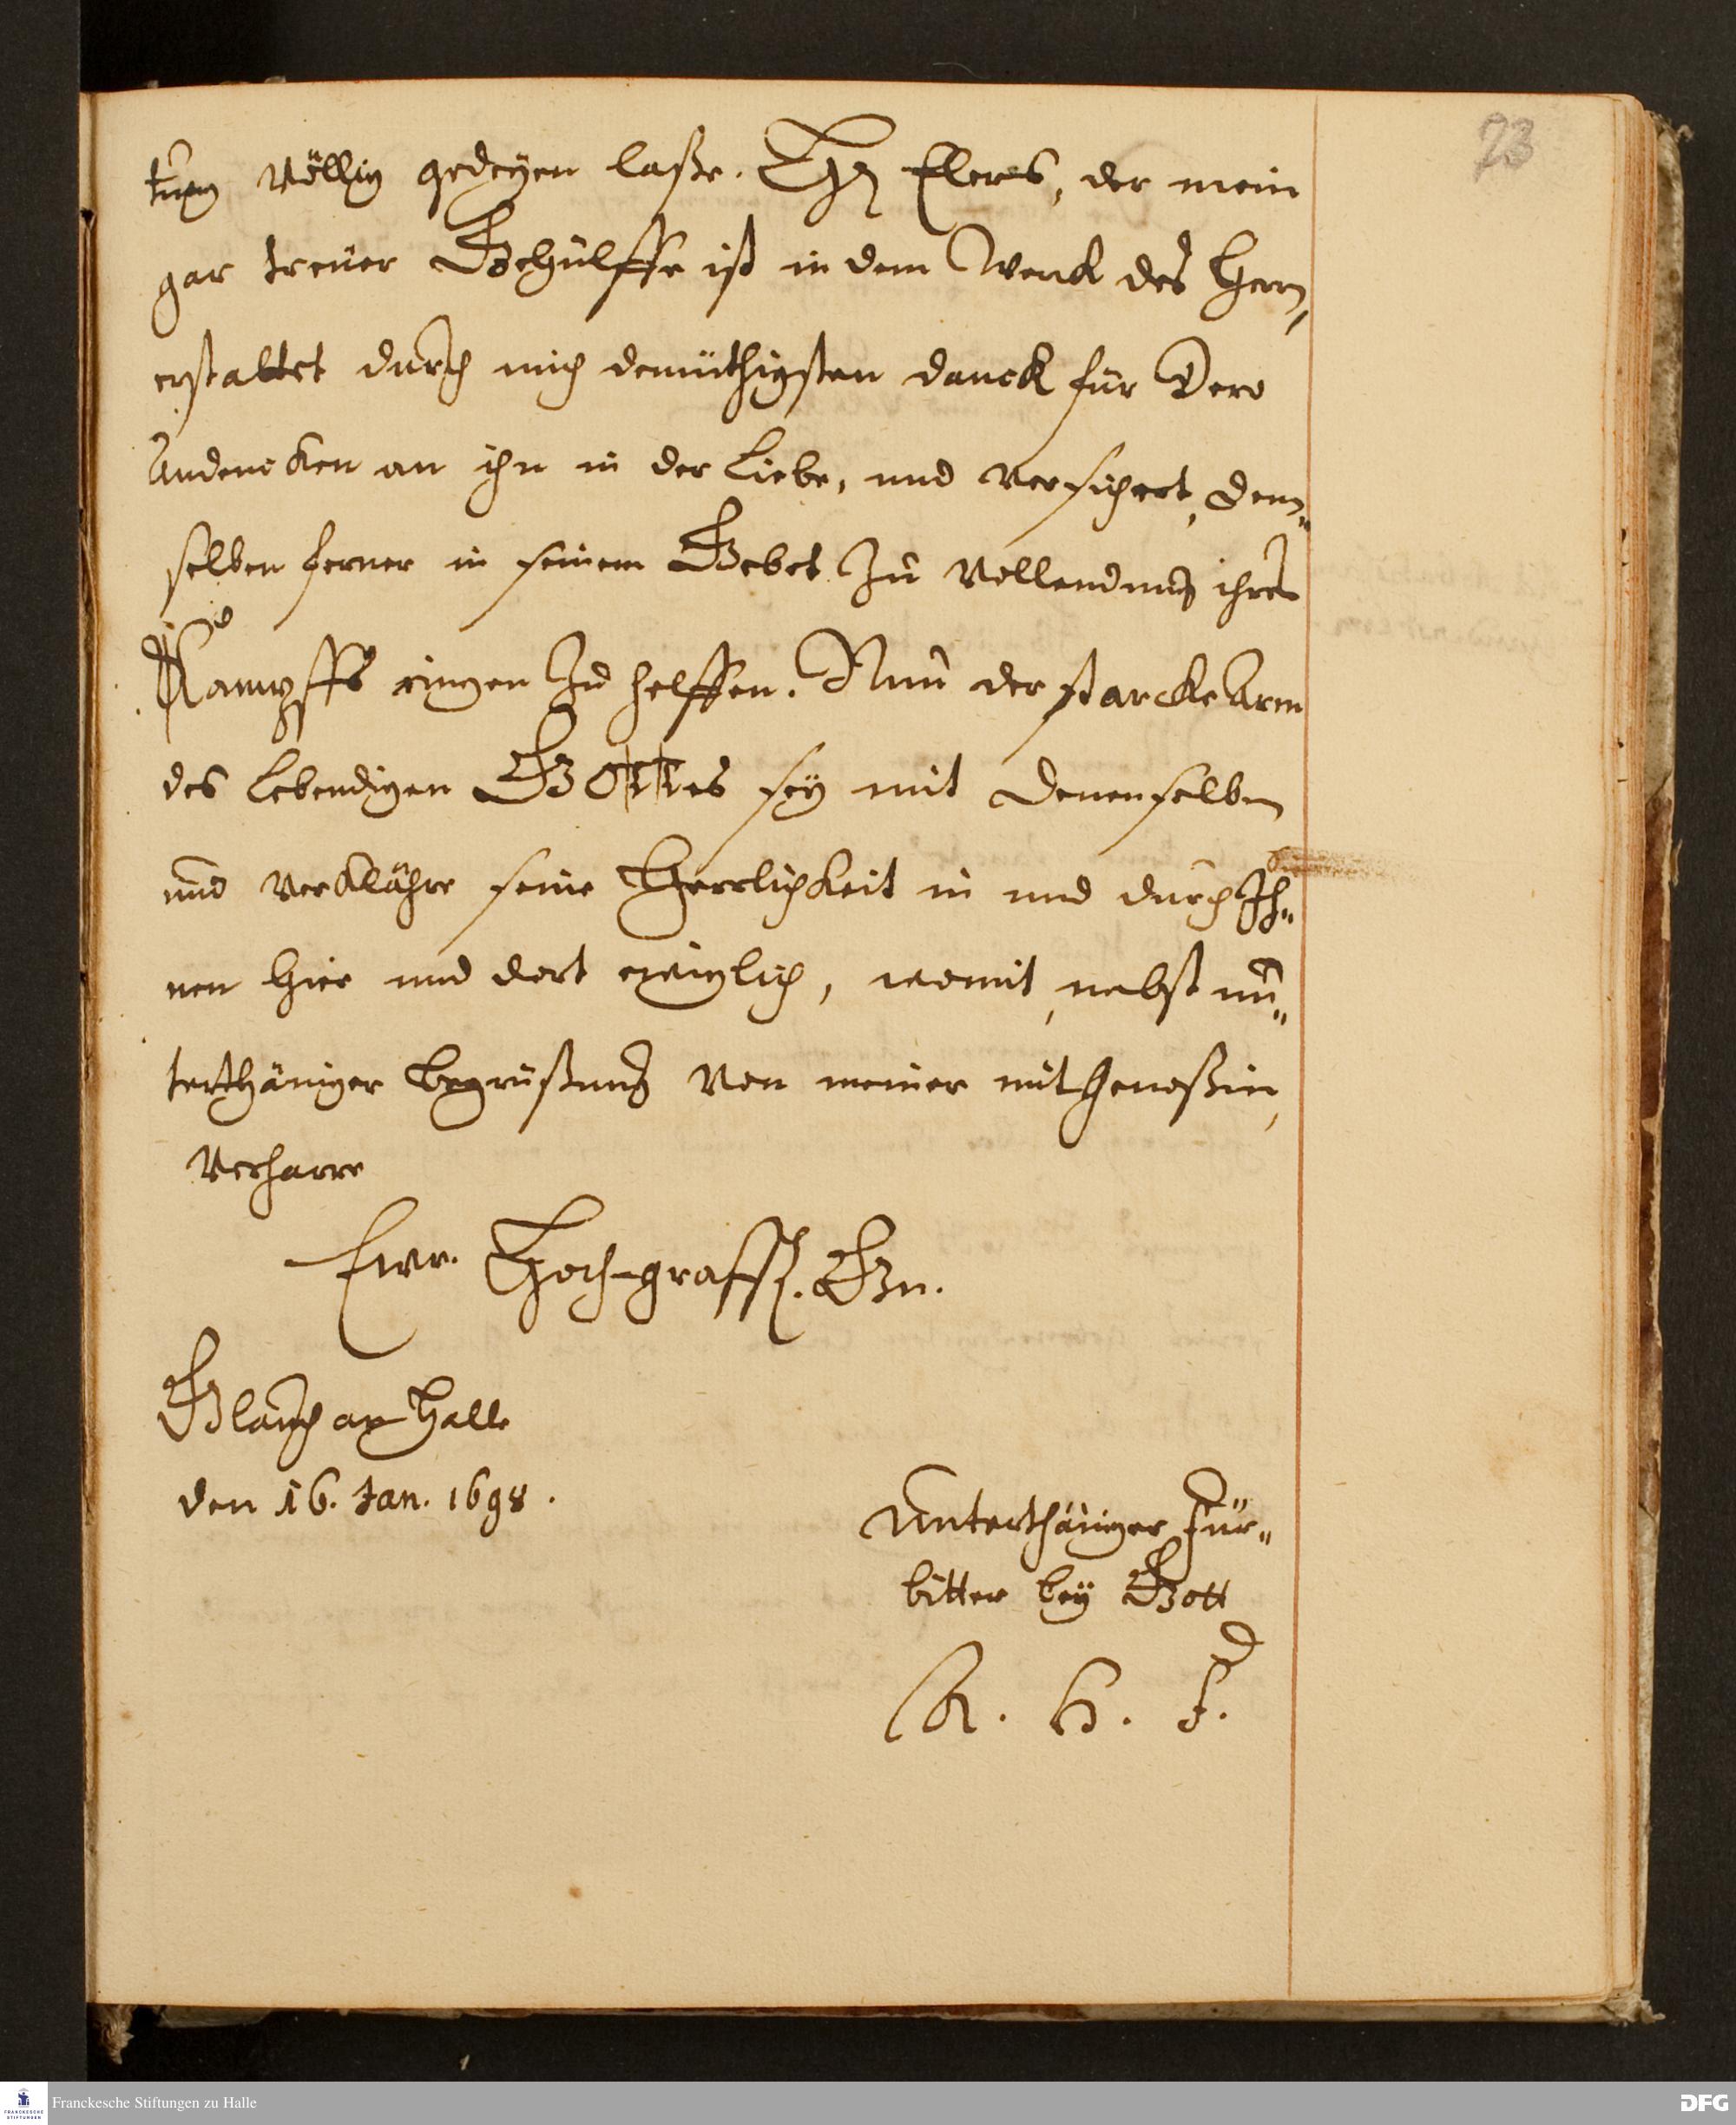 73
tung völlig gedeyen laße. H. Elers, der mein
gar treuer Gehülffe ist in dem Werck des Herrn,
erstattet durch mich demüthigsten danck für Dero
Andencken an ihn in der Liebe, und versichert, dem„
selben ferner in seinem Gebet zu Vollendung ihres
Kampffs ringen zu helffen. Nun der starcke Arm
des Lebendigen GOTTes sey mit Denenselben
und verklähre seine Herrlichkeit in und durch Ih„
nen hier und dort ewiglich, womit, nebst un„
terthäniger begrüßung von meiner mitGenoßin,
Verharre
Ewr. Hoch-gräffl. Gn.
Glauch an Halle
den 16. Jan. 1698.
Unterthäniger Für„
bitter bey Gott
A. H. F.
Franckesche Stiftungen zu Halle
FRANCKESCHE
STIFTUNGEN
DFG